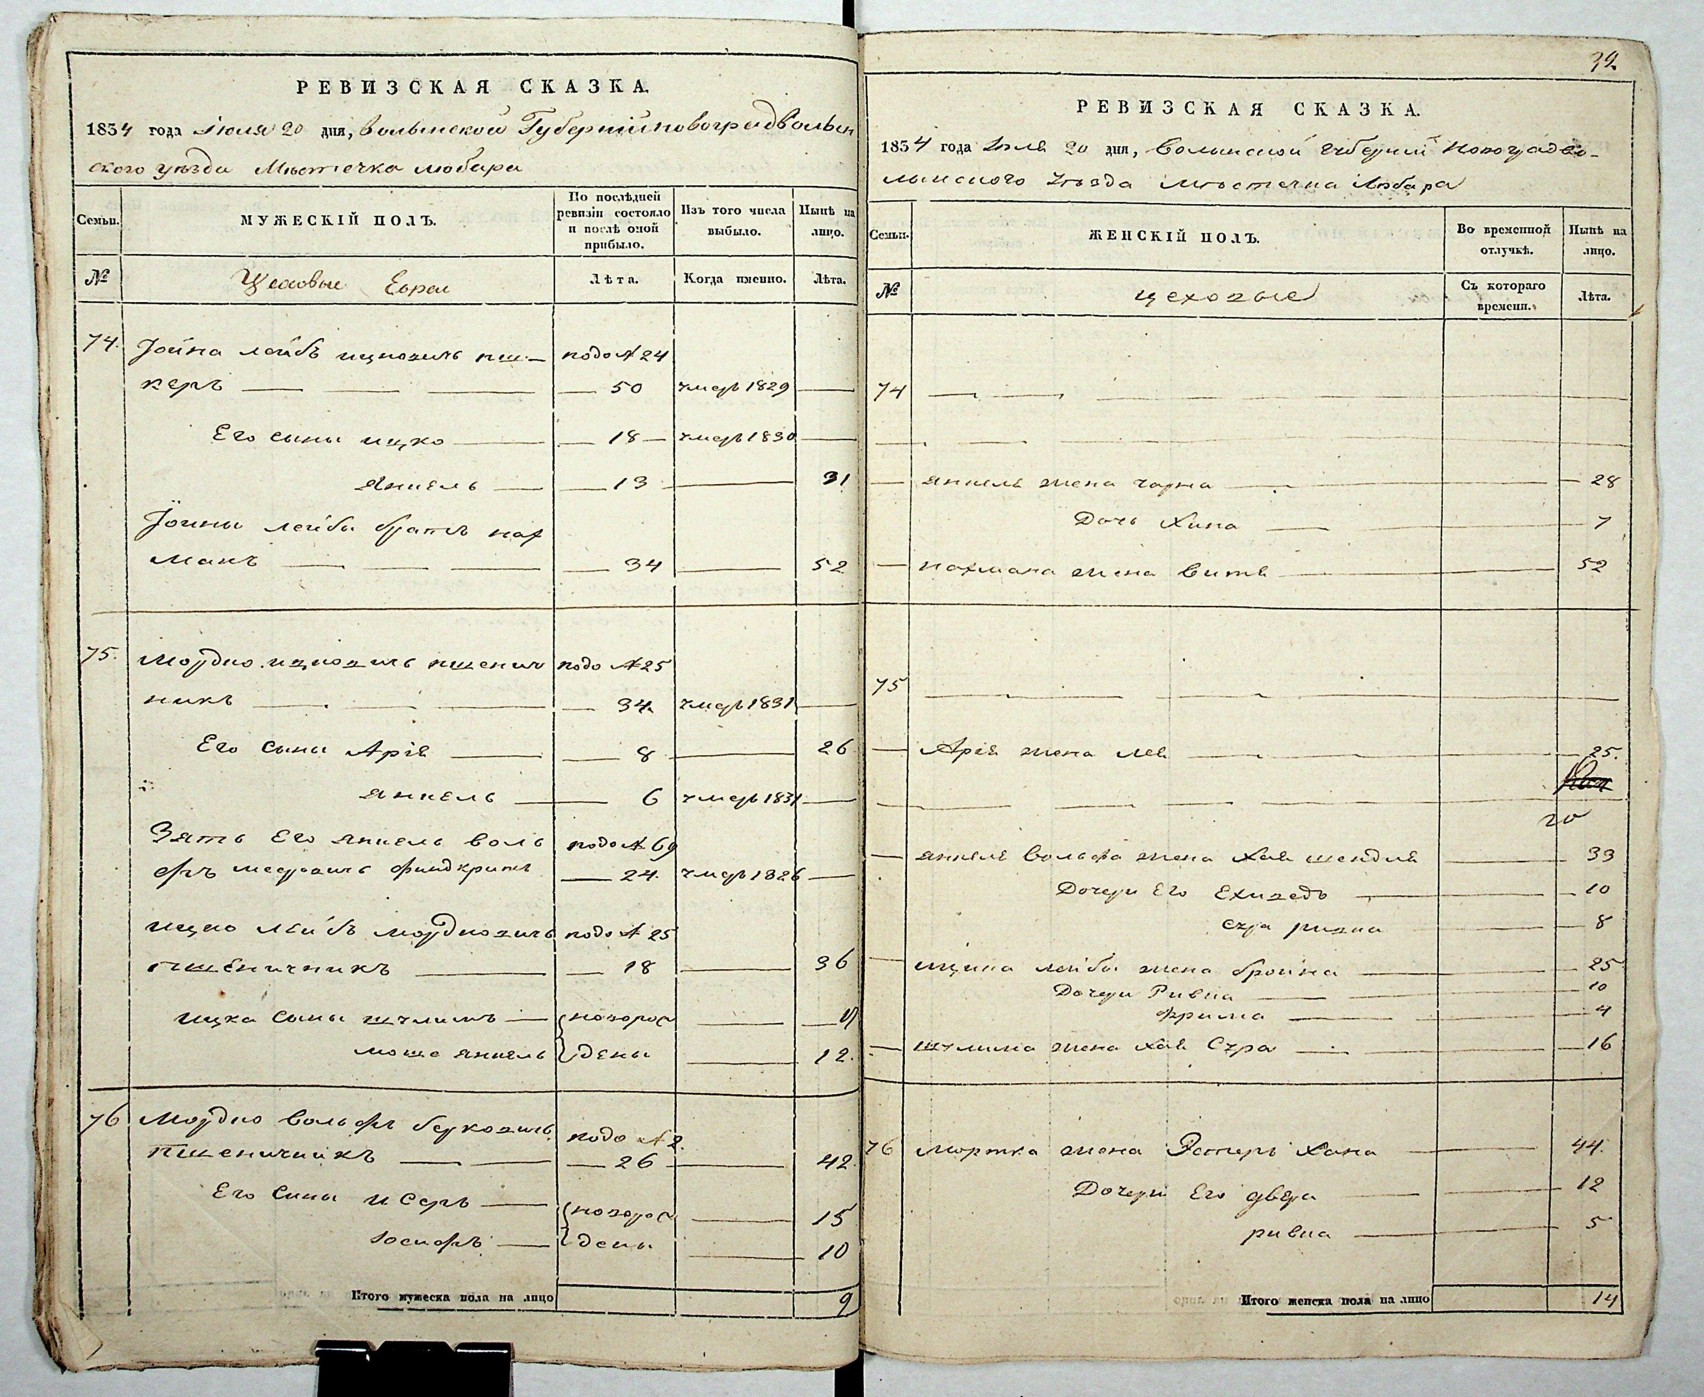 РЕВИЗСКАЯ СКАЗКА.
1834 года Июля 20 дня, Волынской Губерніи Новоградволын
ского уѣзда Мѣстечка Любара
Семьи.
МУЖЕСКІЙ ПОЛЪ.
По послѣдней ревизіи состояло и послѣ оной прибыло.
Изъ того числа выбыло.
Нынѣ на лицо.
№
Цеховые Евреи
Лѣта.
Когда именно.
Лѣта.
74. Іойна Лейбъ Ицковичъ пше— подо № 24
керъ — 50 умеръ 1829 —
Его сыны Ицко — 18 — умеръ 1830 —
Янкель — 13 — 31
Іойны Лейбы братъ Нах
манъ — 34 — 52
75. Мордко Ицковичъ пшенич подо № 25
никъ — 34. умеръ 1831 —
Его сыны Арія — 8 — 26
Янкель — 6 умеръ 1831 —
Зять Его Янкель Воль подо № 69
фъ — 24. умеръ 1826 —
Ицко Лейбъ Мордковичъ подо № 25
пшеничникъ — 18 — 36
Ицка сыны Шулимъ — новорож —
Моше Янкель дены — 12.
76 Мордко Вольфъ Берковичъ подо № 2.
пшеничникъ — 26 — 42.
Его сыны Исеръ — новорож — 15
Іосифъ — дены — 10
Итого мужеска пола на лицо 9
32
РЕВИЗСКАЯ СКАЗКА.
1834 года Июля 20 дня, Волынской Губерніи Новоградво-
лынского уѣзда Мѣстечка Любара
Семьи.
ЖЕНСКІЙ ПОЛЪ.
Во временной отлучкѣ.
Нынѣ на лицо.
№
цеховые
Съ котораго времени.
Лѣта.
74 —
— Янкеля жена Чарна — 28
Дочь Хина — 7
— Нахмана жена Витя — 52
75 —
— Арія жена Лея — 25.
20
— Янкеля Вольфа жена Хая Шендля — 33
Дочери Его Ехиведъ — 10
Сура Ривка — 8
— Ицика Лейбы жена Бройна — 25
Дочери Ривка — 10
Фрима — 4
— Шулима жена Хая Сура — 16
76 Мортка жена Эстеръ Хана — 44.
Дочери Его Двера — 12
Ривка — 5
Итого женска пола на лицо 14